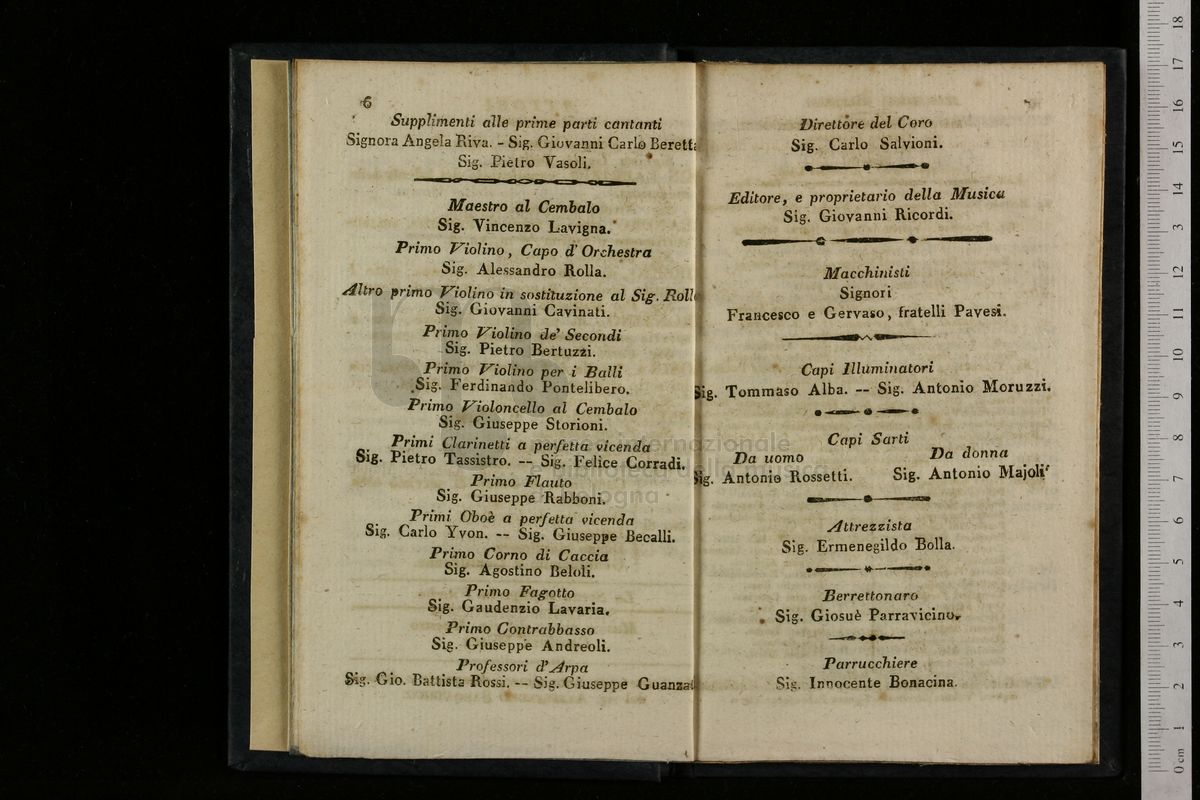 6
Supplimenti alle prime parti cantanti
Signora Angela Riva. - Sig. Giovanni Carlo Berett
Sig. Pietro Vasoli.
Maestro al Cembalo
Sig. Vincenzo Lavigna.
Primo Violino, Capo d'Orchestra
Sig. Alessandro Rolla.
Altro primo Violino in sostituzione al Sig. Roll
Sig. Giovanni Cavinati.
Primo Violino de' Secondi
Sig. Pietro Bertuzzi.
Primo Violino per i Balli
Sig. Ferdinando Pontelibero.
Primo Violoncello al Cembalo
Sig. Giuseppe Storioni.
Primi Clarinetti a perfetta vicenda
Sig. Pietro Tassistro. -- Sig. Felice Corradi.
Primo Flauto
Sig. Giuseppe Rabboni.
Primi Oboè a perfetta vicenda
Sig. Carlo Yvon. -- Sig. Giuseppe Becalli.
Primo Corno di Caccia
Sig. Agostino Beloli.
Primo Fagotto
Sig. Gaudenzio Lavaria.
Primo Contrabbasso
Sig. Giuseppe Andreoli.
Professori d'Arpa
Sig. Gio. Battista Rossi. -- Sig. Giuseppe Guanza
Direttore del Coro
Sig. Carlo Salvioni.
Editore, e proprietario della Musica
Sig. Giovanni Ricordi.
Macchinisti
Signori
Francesco e Gervaso, fratelli Pavesi.
Capi Illuminatori
Sig. Tommaso Alba. -- Sig. Antonio Moruzzi.
Capi Sarti
Da uomo Da donna
Sig. Antonio Rossetti. Sig. Antonio Majoli
Attrezzista
Sig. Ermenegildo Bolla.
Berrettonaro
Sig. Giosuè Parravicino.
Parrucchiere
Sig. Innocente Bonacina.
0 cm 1 2 3 4 5 6 7 8 9 10 11 12 13 14 15 16 17 18